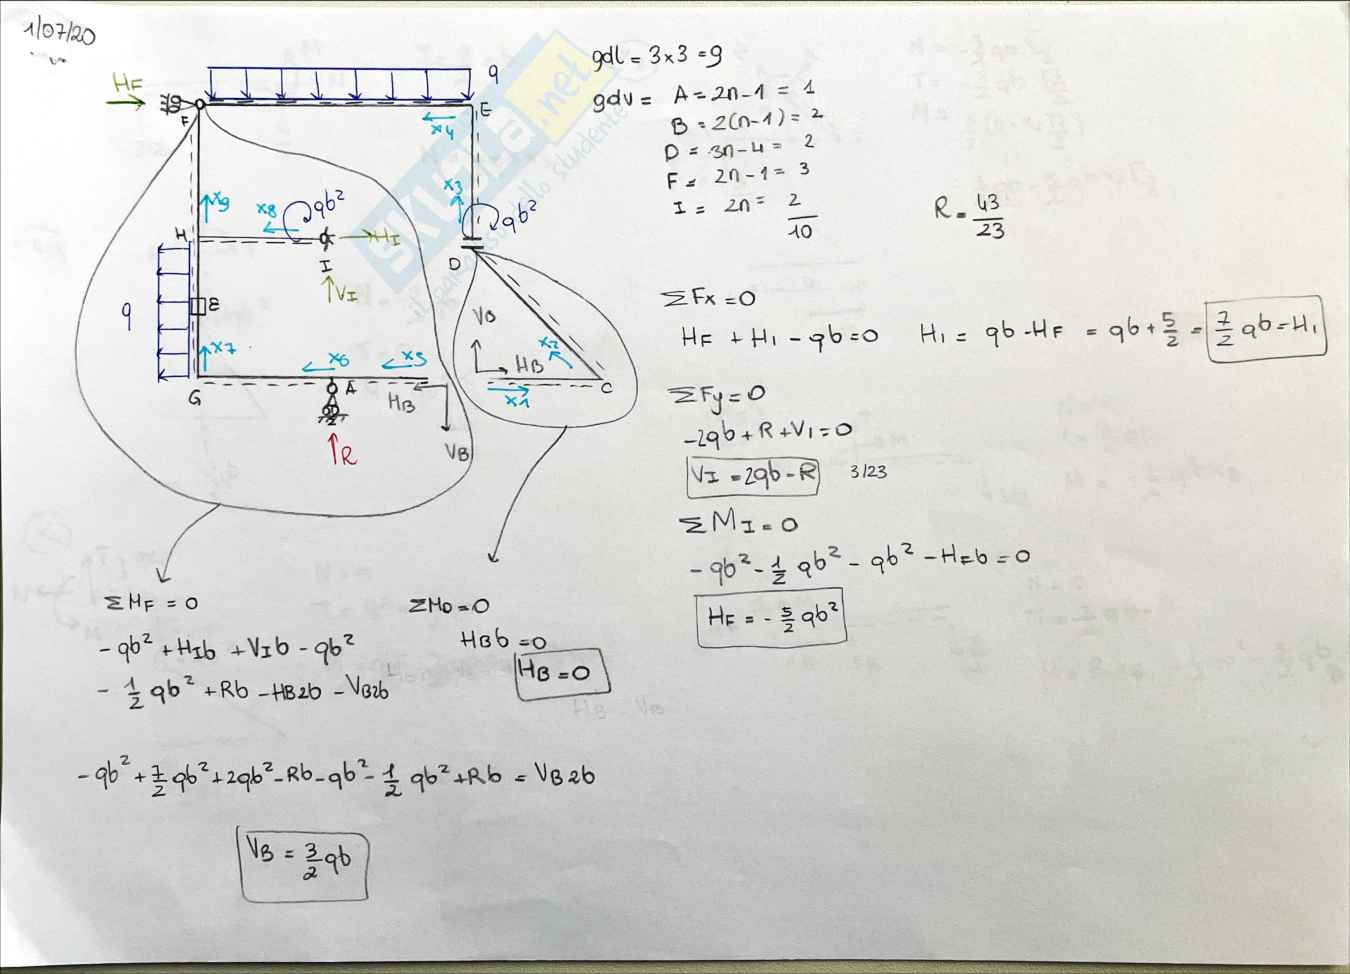 1/07/20
HF
q
F
E
x4
x9
x8
qb²
x3
qb²
H
HI
I
VI
D
q
B
VB
x2
HB
x1
C
x7
x6
x5
G
A
HB
VB
R
gdl = 3×3 = 9
gdv = A = 2n-1 = 1
B = 2(n-1) = 2
D = 3n-4 = 2
F = 2n-1 = 3
I = 2n = 2
10
R = 43/23
ΣFx=0
HF + H1 - qb=0 H1 = qb-HF = qb+5/2 = 7/2 qb=H1
ΣFy=0
-2qb+R+V1=0
VI =2qb-R 3/23
ΣMI=0
-qb²-1/2 qb²-qb²-HFb=0
HF = -5/2 qb²
ΣMF = 0
-qb²+HIb+VIb-qb²
-1/2 qb²+Rb-HB2b-VB2b
ΣMD=0
HBb=0
HB=0
-qb²+7/2 qb²+2qb²-Rb-qb²-1/2 qb²+Rb = VB2b
VB = 3/2 qb
SKUOLA.net